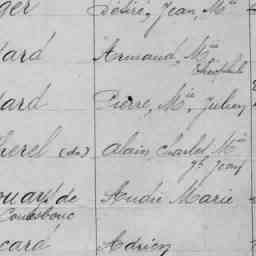 ger Désiré, Jean, Mie
dard Armand, Mie
Théophile
dard Pierre, Mie, Julien
herel (du) Alain Charles Mie
Jh Jean
ouays de André Marie
Couesbouc
caré Adrien